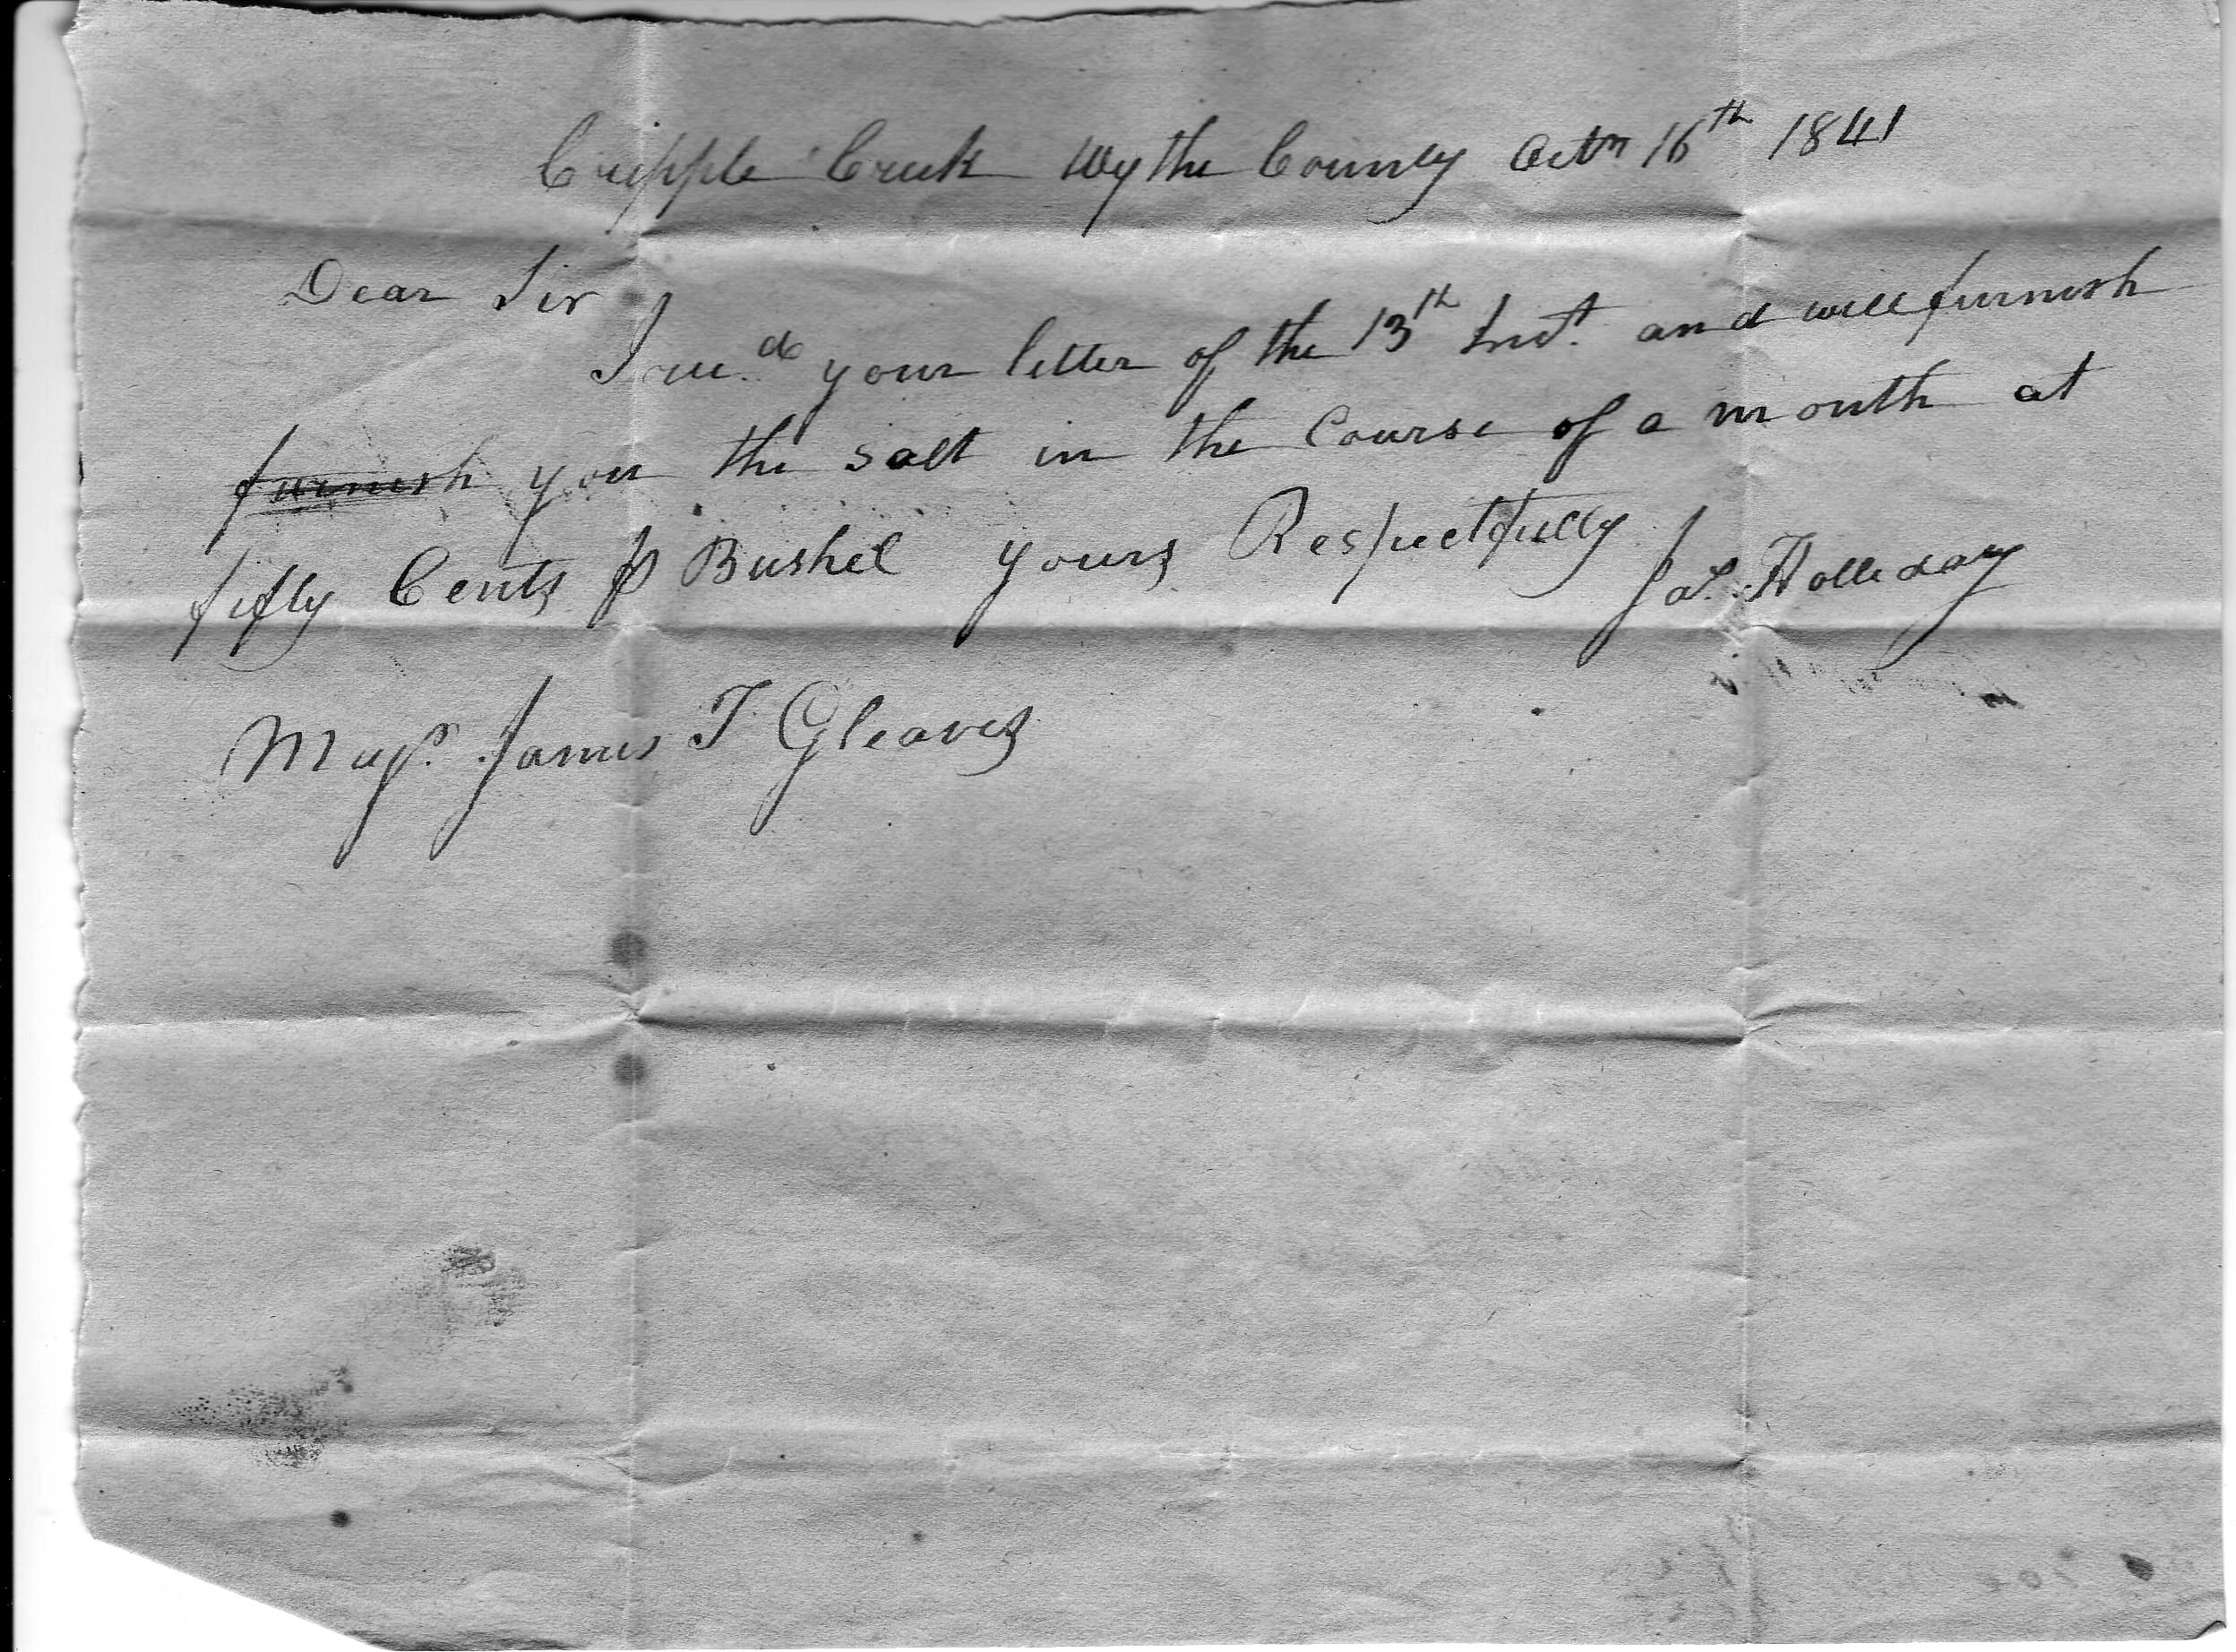 Cripple Creek Wythe County Octr 16th 1841
Dear Sir
I recd. your letter of the 13th Inst. and will furnish
furnish you the salt in the Course of a month at
fifty Cents P Bushel yours Respectfully
Jas. Holleday
Majr. James T Gleaves